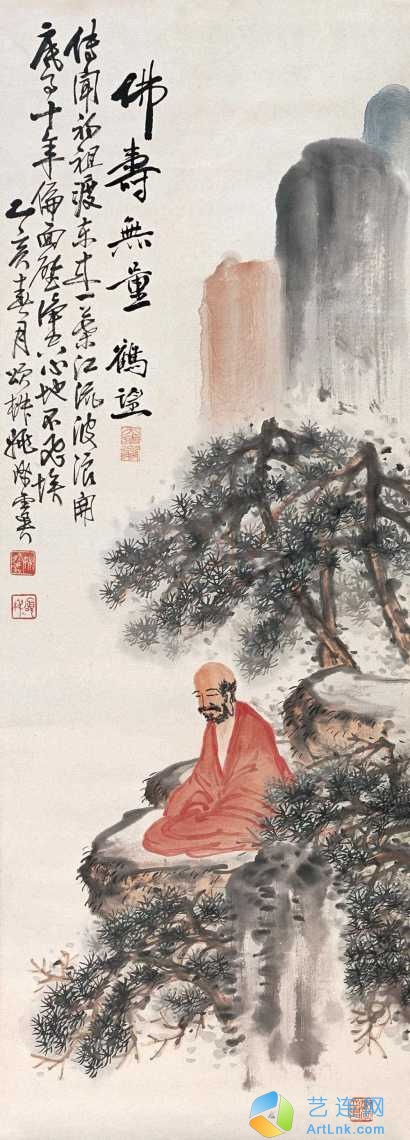 佛壽無量 鶴
傳聞初祖渡東來一葦江流波浪開
底事十年偏面壁心地不飛埃
乙亥春月姚
艺连网
ArtLnk.com